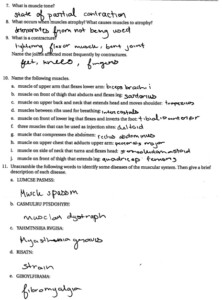 7. What is muscle tone?
state of partial contraction
8. What occurs when muscles atrophy? What causes muscles to atrophy?
from not being used
9. What is a contracture?
tightening muscle, bent joint
Name the joints affected most frequently by contractures.
feet, knees, fingers
10. Name the following muscles.
a. muscle of upper arm that flexes lower arm: biceps brachii
b. muscle on front of thigh that abducts and flexes leg: sartorius
c. muscle on upper back and neck that extends head and moves shoulder: trapezius
d. muscles between ribs used for breathing: intercostals
e. muscle on front of lower leg that flexes and inverts the foot: tibialis anterior
f. three muscles that can be used as injection sites: deltoid
g. muscle that compresses the abdomen: rectus abdominus
h. muscle on upper chest that adducts upper arm: pectoralis major
i. muscle on side of neck that turns and flexes head: sternocleidomastoid
j. muscle on front of thigh that extends leg: quadricep femoris
11. Unscramble the following words to identify some diseases of the muscular system. Then give a brief description of each disease.
a. LUMCSE PASMSS:
Muscle spasm
b. CASMULRU PTSDOHYRR:
muscular dystroph
c. YASIMTNSHA RVGISA:
Myasthenia gravis
d. RISATN:
strain
e. GIBOYLFIRAMA:
fibromyalgia